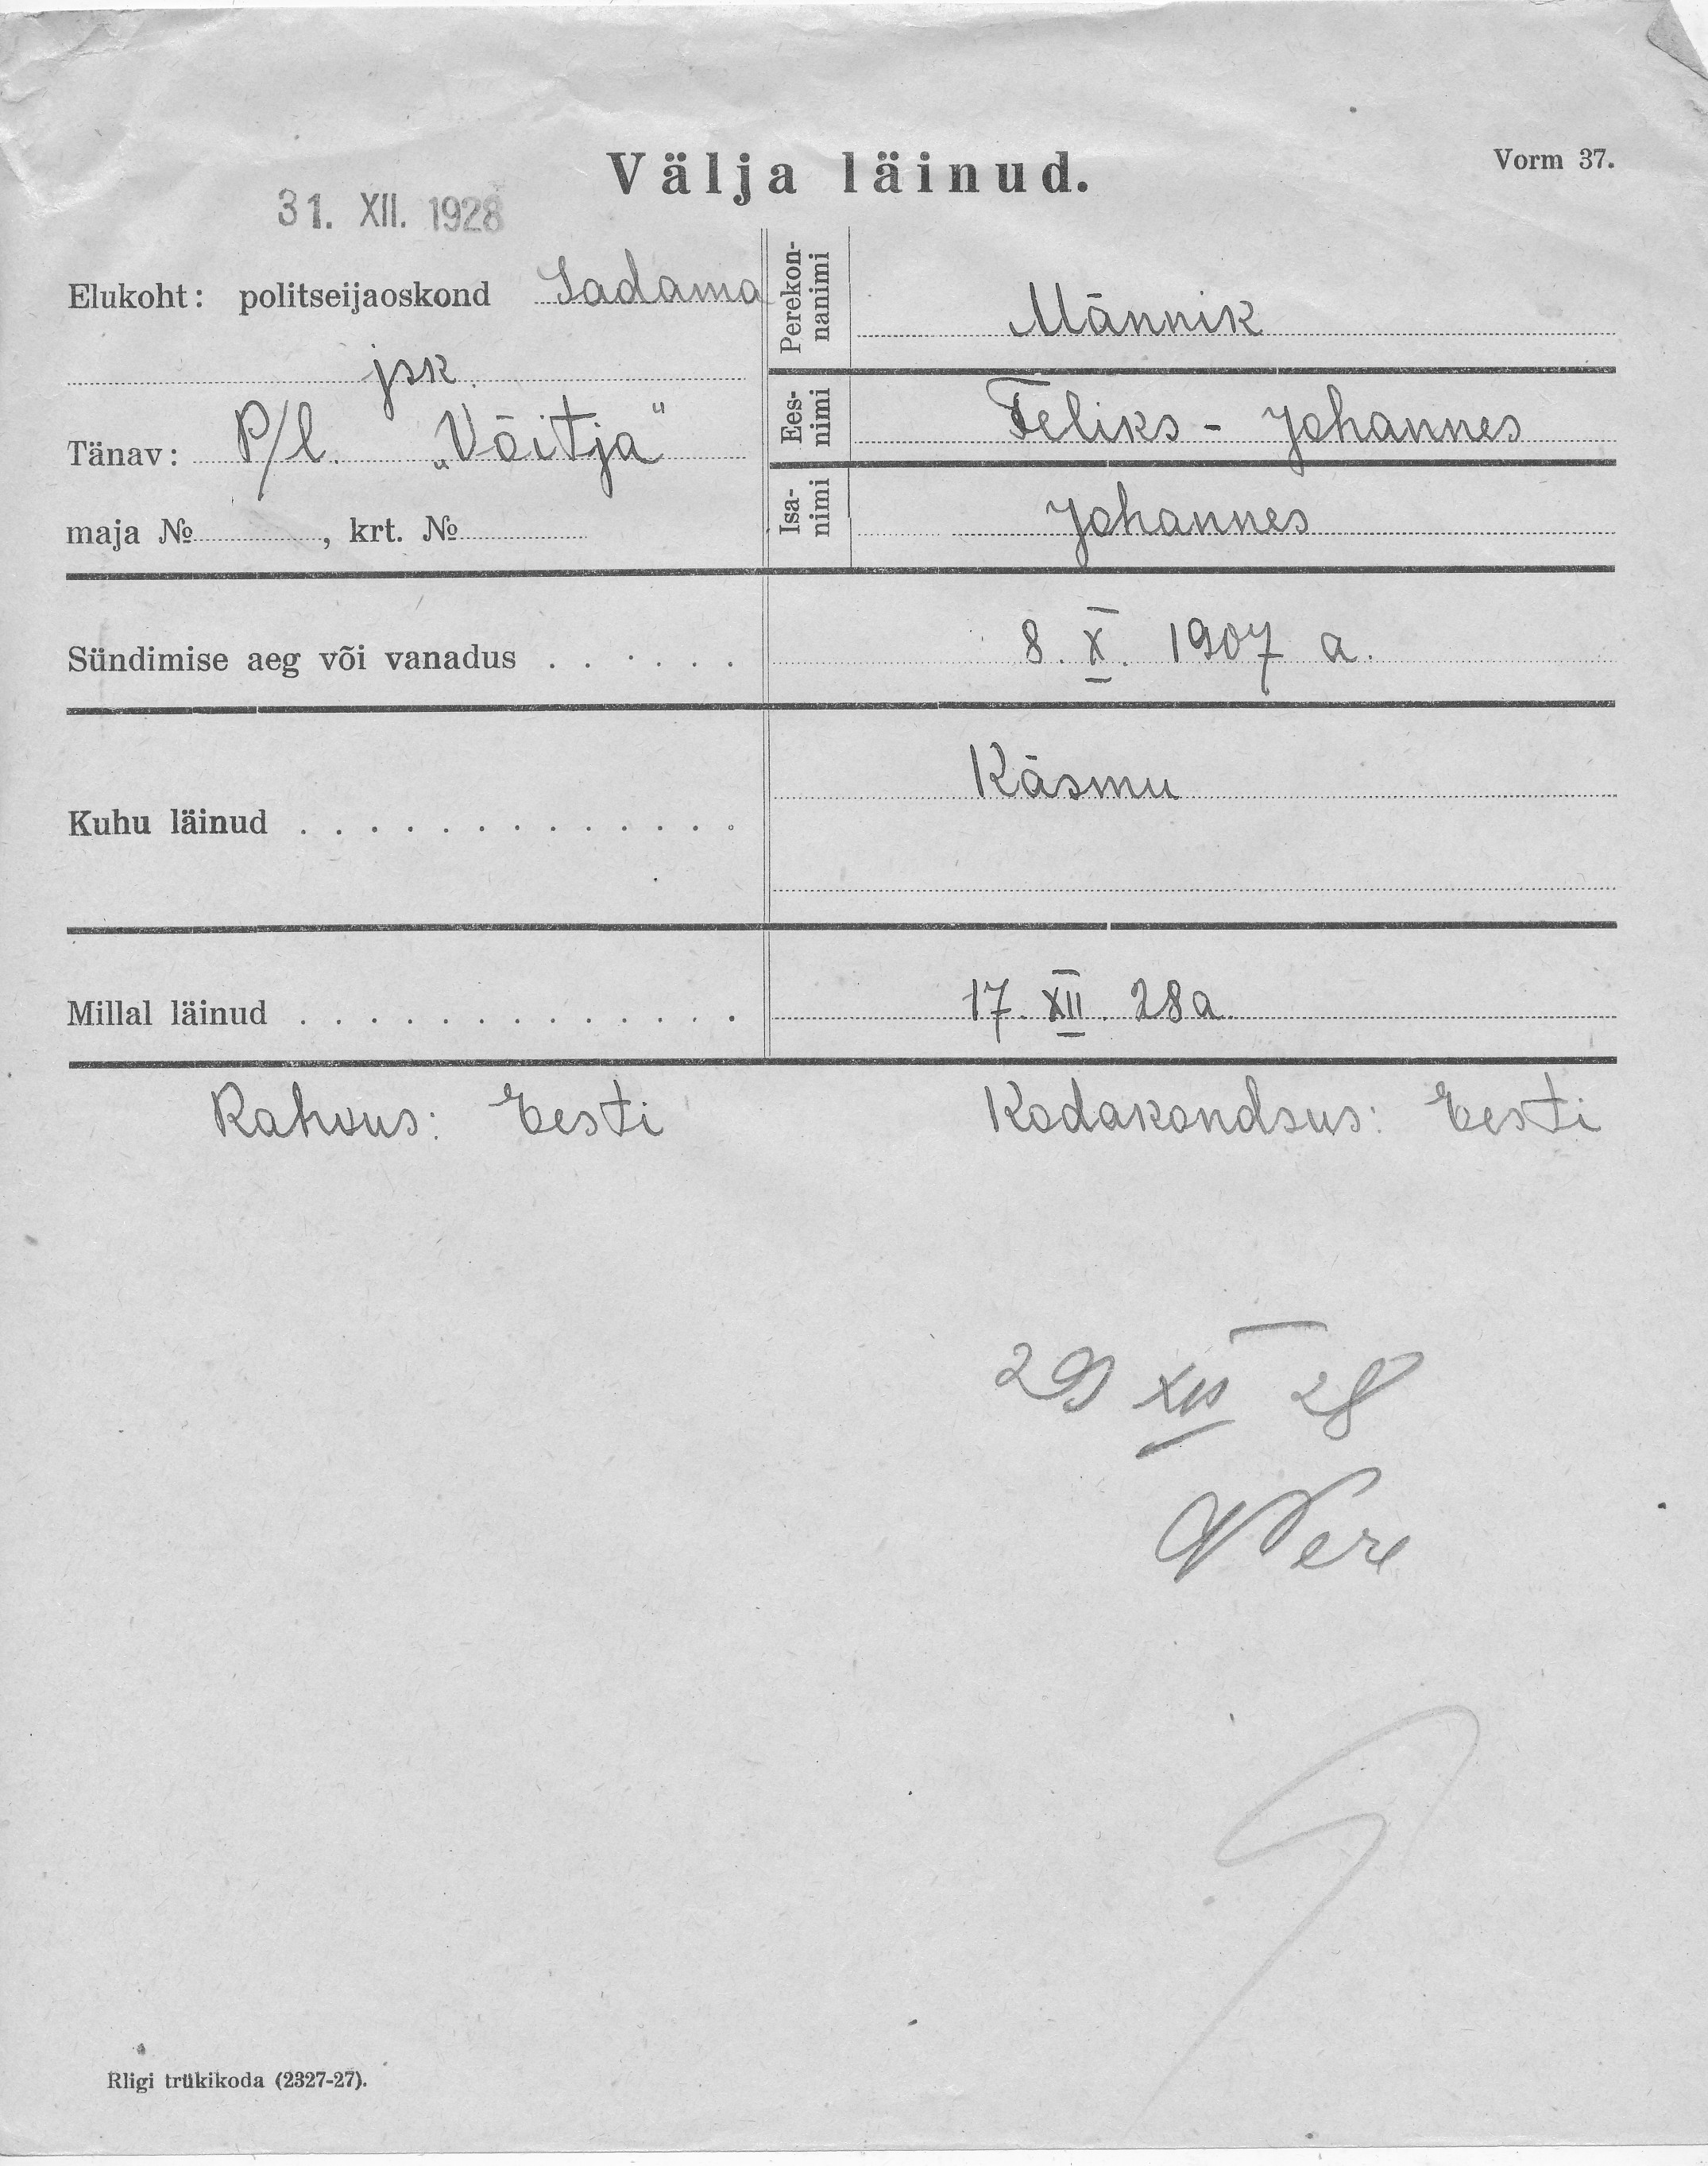 Välja läinud.
Vorm 37.
31. XII. 1928
Elukoht: politseijaoskond Sadama
jsk.
Tänav: P/l. „Võitja"
maja № , krt. №
Perekon-
nanimi
Männik
Ees-
nimi
Feliks - Johannes
Isa-
nimi
Johannes
Sündimise aeg või vanadus . . . . . .
8. X. 1907 a.
Kuhu läinud . . . . . . . . . . . . .
Käsmu
Millal läinud . . . . . . . . . . . . .
17. XII. 28a.
Rahvus: Eesti
Kodakondsus: Eesti
29 XII 28
Riigi trükikoda (2327-27).